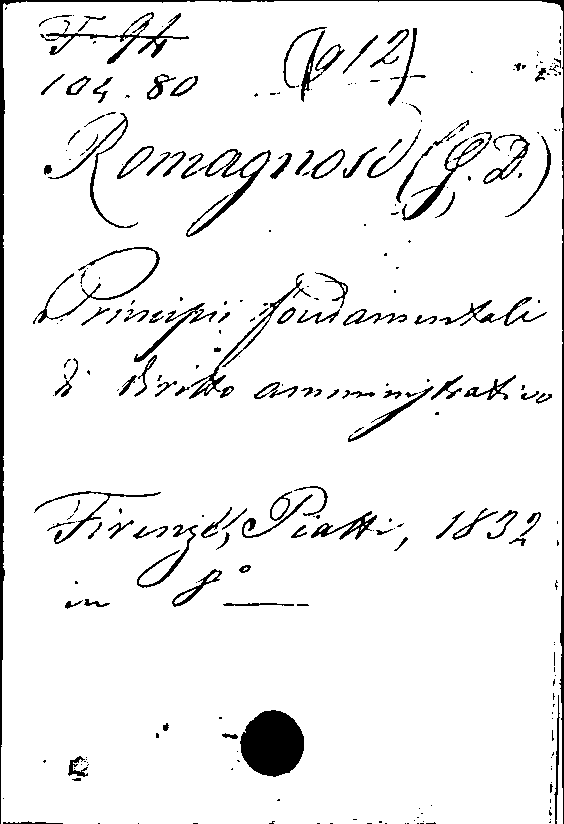 F. 94
104.80 (912)
Romagnosi (G. D.)
Principii fondamentali
di diritto amministrativo
Firenze, Piatti, 1832
in 8°